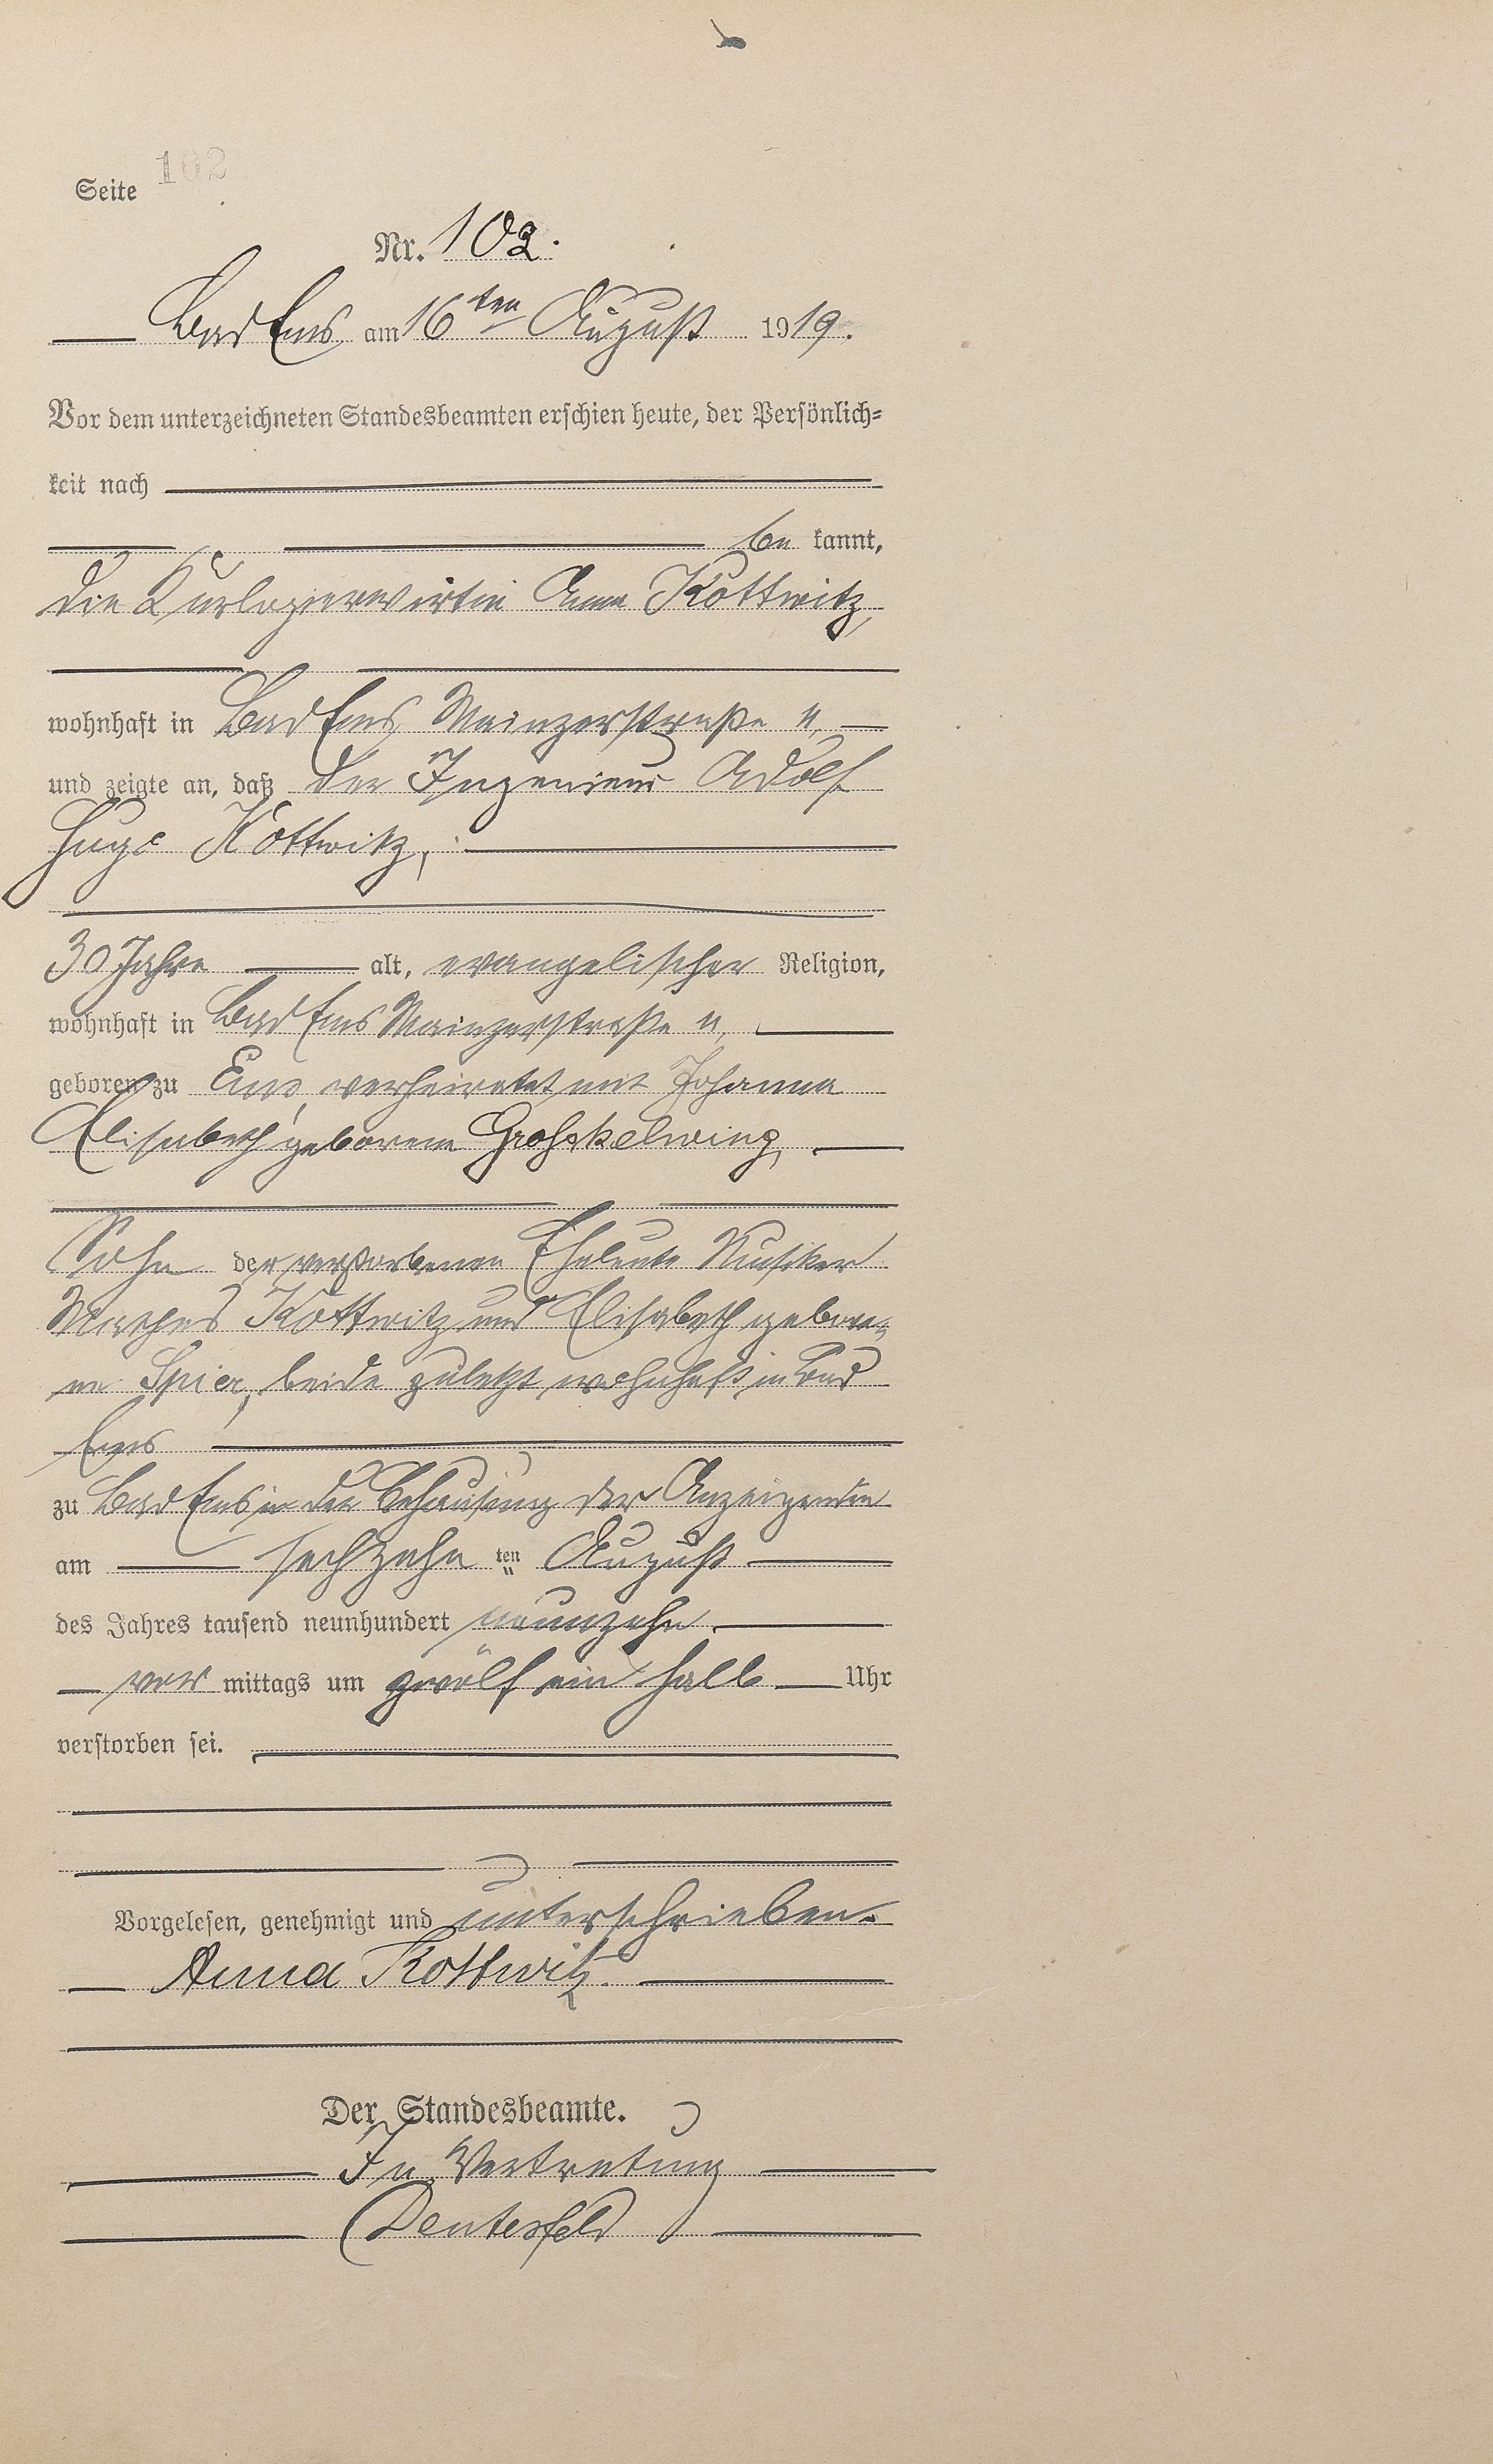 Seite 102
Nr. 102.
Bad Ems am 16ten August 1919.
Vor dem unterzeichneten Standesbeamten erschien heute, der Persönlich-
keit nach
be kannt,
die Kurlogierwirtin Anna Kottwitz,
wohnhaft in Bad Ems Mainzerstraße 11,
und zeigte an, daß der Ingenieur Adolf
Hugo Kottwitz,
30 Jahre alt, evangelischer Religion,
wohnhaft in Bad Ems Mainzerstraße 11,
geboren zu Ems, verheiratet mit Johanna
Elisabeth geborene Großskelwing,
Sohn der verstorbenen Eheleute Musiker
Kottwitz und Elisabeth gebore-
ne Spier, beide zuletzt wohnhaft in Bad
Ems
zu Bad Ems in der Behausung der Anzeigenden
am sechzehn ten August
des Jahres tausend neunhundert neunzehn
vor mittags um zwölf ein halb Uhr
verstorben sei.
Vorgelesen, genehmigt und unterschrieben.
Anna Kottwitz.
Der Standesbeamte.
In Vertretung